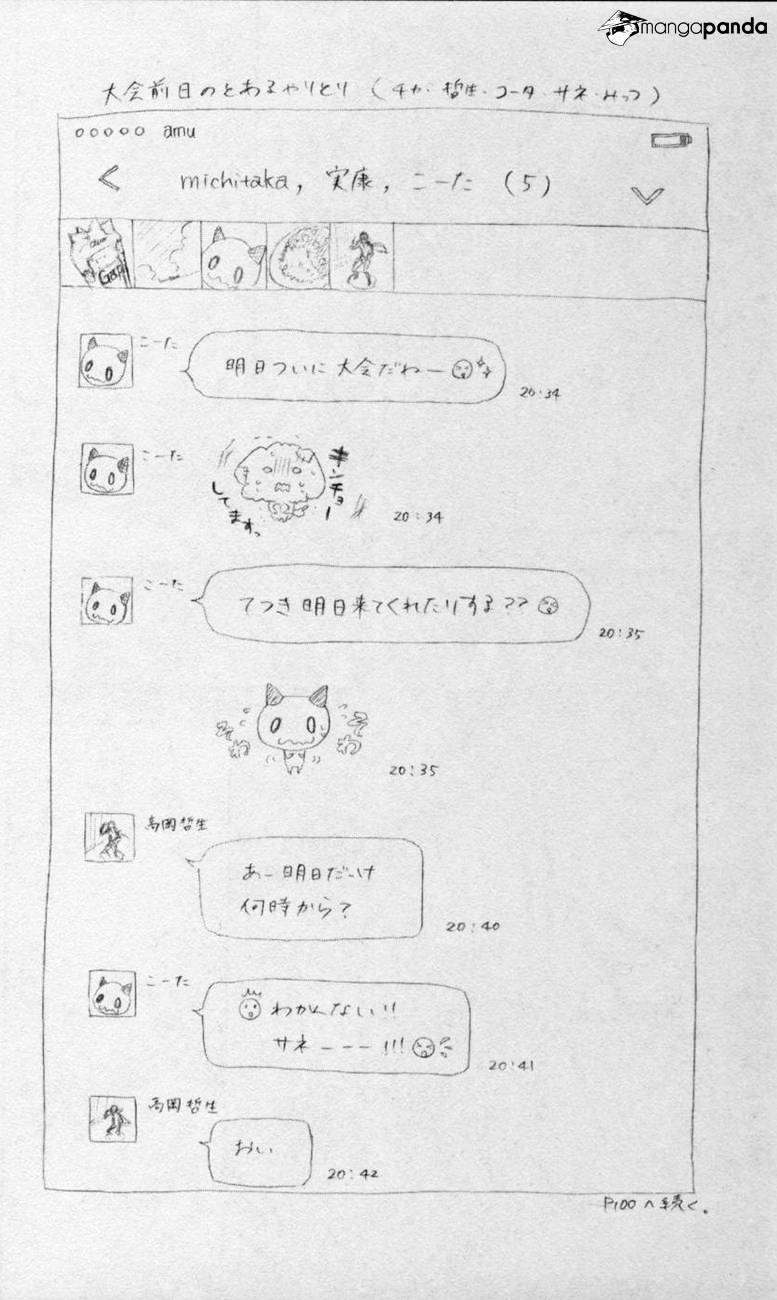 mangapanda
大会前日のとあるやりとり(チカ・哲生・コータ・サネ・みっつ)
amu
michitaka, 実康, こーた (5)
こーた
明日ついに大会だねー
20:34
こーた
キンチョー
してますっ
20:34
こーた
てつき明日来てくれたりする??
20:35
そわ
そわ
20:35
高岡哲生
あー明日だっけ
何時から?
20:40
こーた
わかんない!!
サネーーー!!!
20:41
高岡哲生
おい
20:42
P100へ続く。